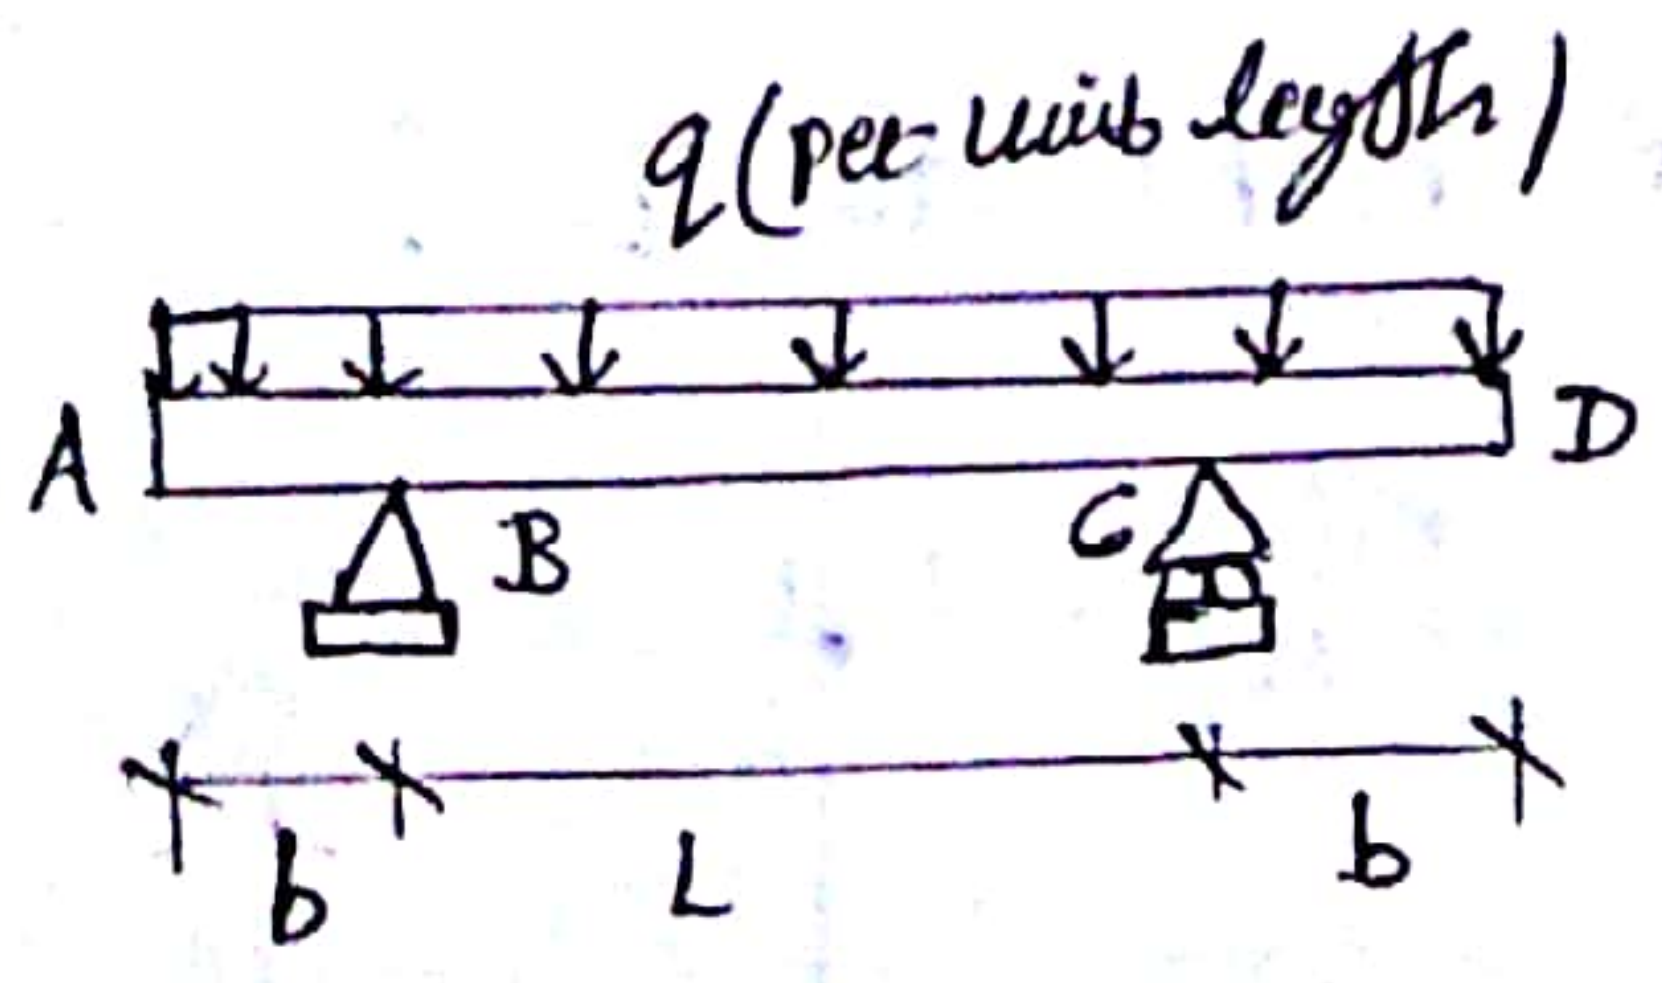 q (per unit length)
A
D
B
C
b
L
b